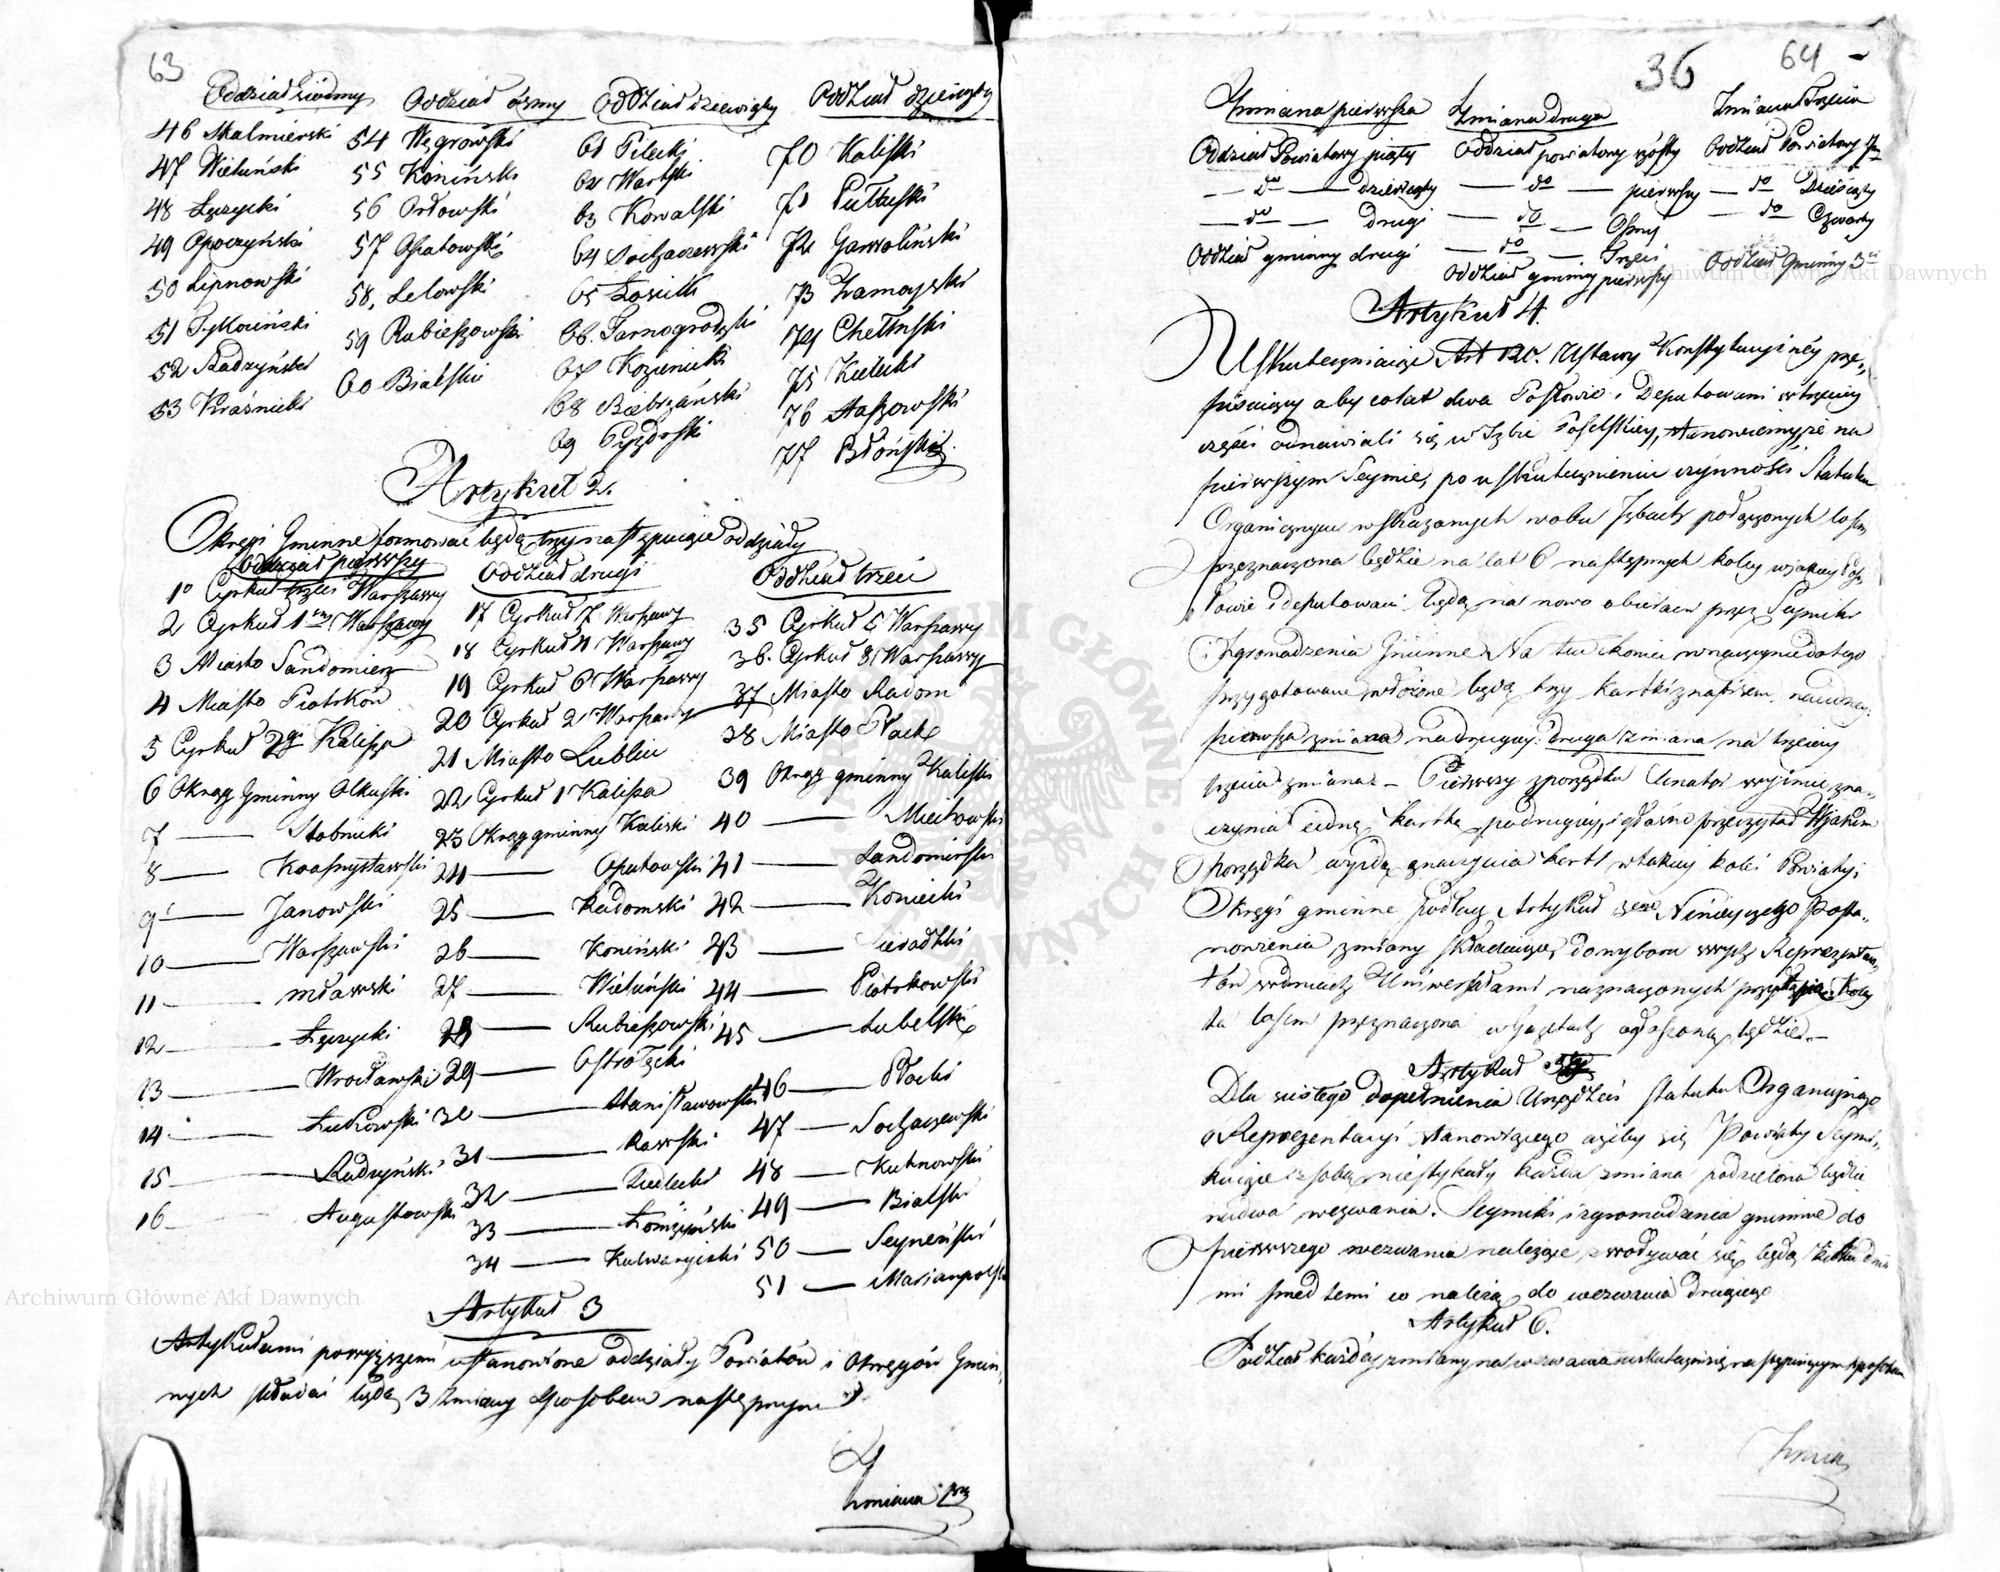 63
Oddział siódmy
46 Skalmierski
47 Wieluński
48 Łęczycki
49 Opoczyński
50 Lipnowski
51 Tykociński
52 Radzyński
53 Kraśnicki
Oddział ósmy
54 Węgrowski
55 Koniński
56 Orłowski
57 Opatowski
58. Lelowski
59 Rubieszowski
60 Bialski
Oddział dziewiąty
61 Pilecki
62 Wartski
63 Kowalski
64 Sochaczewski
65 Łosicki
66. Tarnogrodzki
67 Kozienicki
68 Biebrzański
69 Pyzdrski
Oddział dziesiąty
70 Kaliski
71 Pułtuski
72 Garwoliński
73 Zamoyski
74 Chełmski
75 Kielecki
76 Staszowski
77 Błoński
Artykuł 2.
Okręgi Gminne formować będą trzy następujące oddziały
Oddział pierwszy
1o Cyrkuł trzeci Warszawy
2 Cyrkuł 1szy Warszawy
3 Miasto Sandomierz
4 Miasto Piotrków
5 Cyrkuł 2gi Kalisza
6 Okrąg Gminny Olkuski
7 — Stobnicki
8 — Krasnystawski
9 — Janowski
10 — Warszawski
11 — Mławski
12 — Łęczycki
13 — Wrocławski
14 — Łukowski
15 — Radzyński
16 — Augustowski
Oddział drugi
17 Cyrkuł 7 Warszawy
18 Cyrkuł 4 Warszawy
19 Cyrkuł 6 Warszawy
20 Cyrkuł 2 Warszawy
21 Miasto Lublin
22 Cyrkuł 1 Kalisza
23 Okrąg gminny Kaliski
24 — Opatowski
25 — Radomski
26 — Koniński
27 — Wieluński
28 — Rubieszowski
29 — Ostrołęcki
30 — Stanisławowski
31 — Rawski
32 — Siedlecki
33 — Łomżyński
34 — Kalwaryiski
Oddział trzeci
35 Cyrkuł 5 Warszawy
36. Cyrkuł 8 Warszawy
37 Miasto Radom
38 Miasto Płock
39 Okrąg gminny Kaliski
40 — Miechowski
41 — Sandomirski
42 — Koniecki
43 — Sieradzki
44 — Piotrkowski
45 — Lubelski
46 — Płocki
47 — Sochaczewski
48 — Kutnowski
49 — Bialski
50 — Seyneński
51 — Maryampolski
Artykuł 3
Artykułami powyższemi ustanowione oddziały Powiatów i Okręgów Gmin-
nych składać będą 3 zmiany sposobem następnym
Zmiana
36
64
Zmiana pierwsza
Oddział Powiatowy piąty
— do — dziewiąty
— do — drugi
Oddział gminny drugi
Zmiana druga
Oddział powiatowy szósty
— do — pierwszy
— do — Osmy
— do — Trzeci
Oddział gminny pierwszy
Zmiana Trzecia
Oddział Powiatowy
— do Dziesiąty
— do Czwarty
Oddział Gminny 3ci
Artykuł 4.
Uskuteczniając Art 120. Ustawy Konstytucyiney prze-
pisuiący aby colat dwa Posłowie i Deputowani w trzeciey
części odnawiali się w Izbie Poselskiey, stanowiemy że na
pierwszym Seymie, po uskutecznieniu czynności Statutem
Organicznym wskazanych w obu Izbach połączonych losem
przeznaczona będzie na lat 6 następnych koley w jakiey Pos-
łowie i deputowani będą na nowo obierani przez Seymiki
i Zgromadzenia Gminne. Na ten koniec w naczynie do tego
przygotowane włożone będą trzy kartki z napisem na iedney
pierwsza zmiana na drugiey: druga zmiana na trzeciey
trzecia zmiana. — Pierwszy z porządku Senator wyjmie z na-
czynia iedną kartkę po drugiey, i głośno przeczyta W jakim
porządku wyydą z naczynia kartki w takiey kolei Powiaty i
Okręgi gminne podług Artykułu 3go Ninieyszego Posta-
nowienia zmiany składaiące, do wyboru swych Reprezentan-
tów w dniach Uniwersałami naznaczonych przystąpią. Koley
ta losem przeznaczona w Gazetach ogłoszoną będzie. —
Artykuł 5
Dla ścisłego dopełnienia Urządzeń statutu Organicznego
o Reprezentacyi stanowiącego ażeby się Powiaty Seymi-
kuiące z sobą niestykały każda zmiana podzielona będzie
na dwa wezwania. Seymiki i zgromadzenia gminne do
pierwszego wezwania należące zwoływać się będą kilku dnia-
mi przed temi co należą do wezwania drugiego
Artykuł 6.
Podział każdey zmiany na wezwania uskuteczni się następuiącym sposobem
Archiwum Główne Akt Dawnych
Archiwum Główne Akt Dawnych